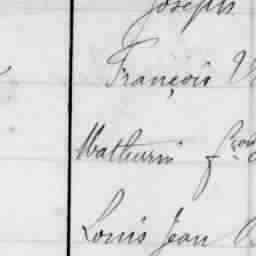 Joseph
François
Mathurin fçois
Louis Jean